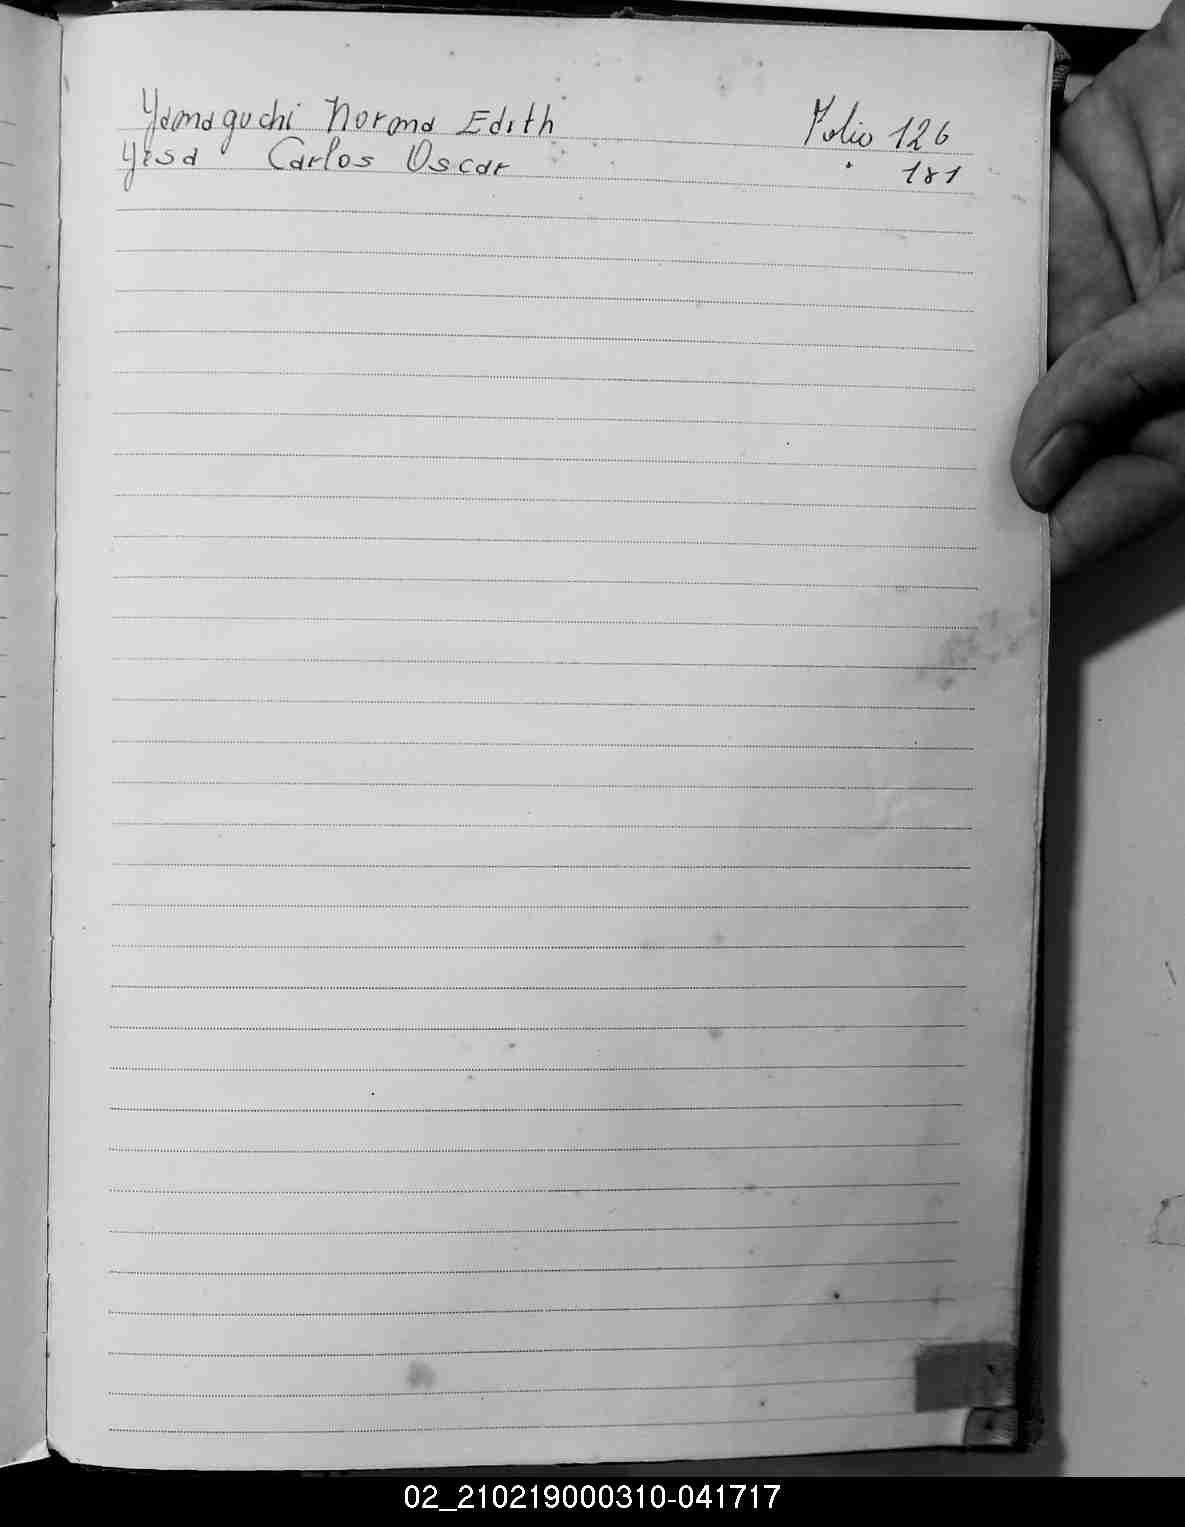 Yamaguchi Norma Edith Folio 126
Yesa Carlos Oscar " 181
02_210219000310-041717